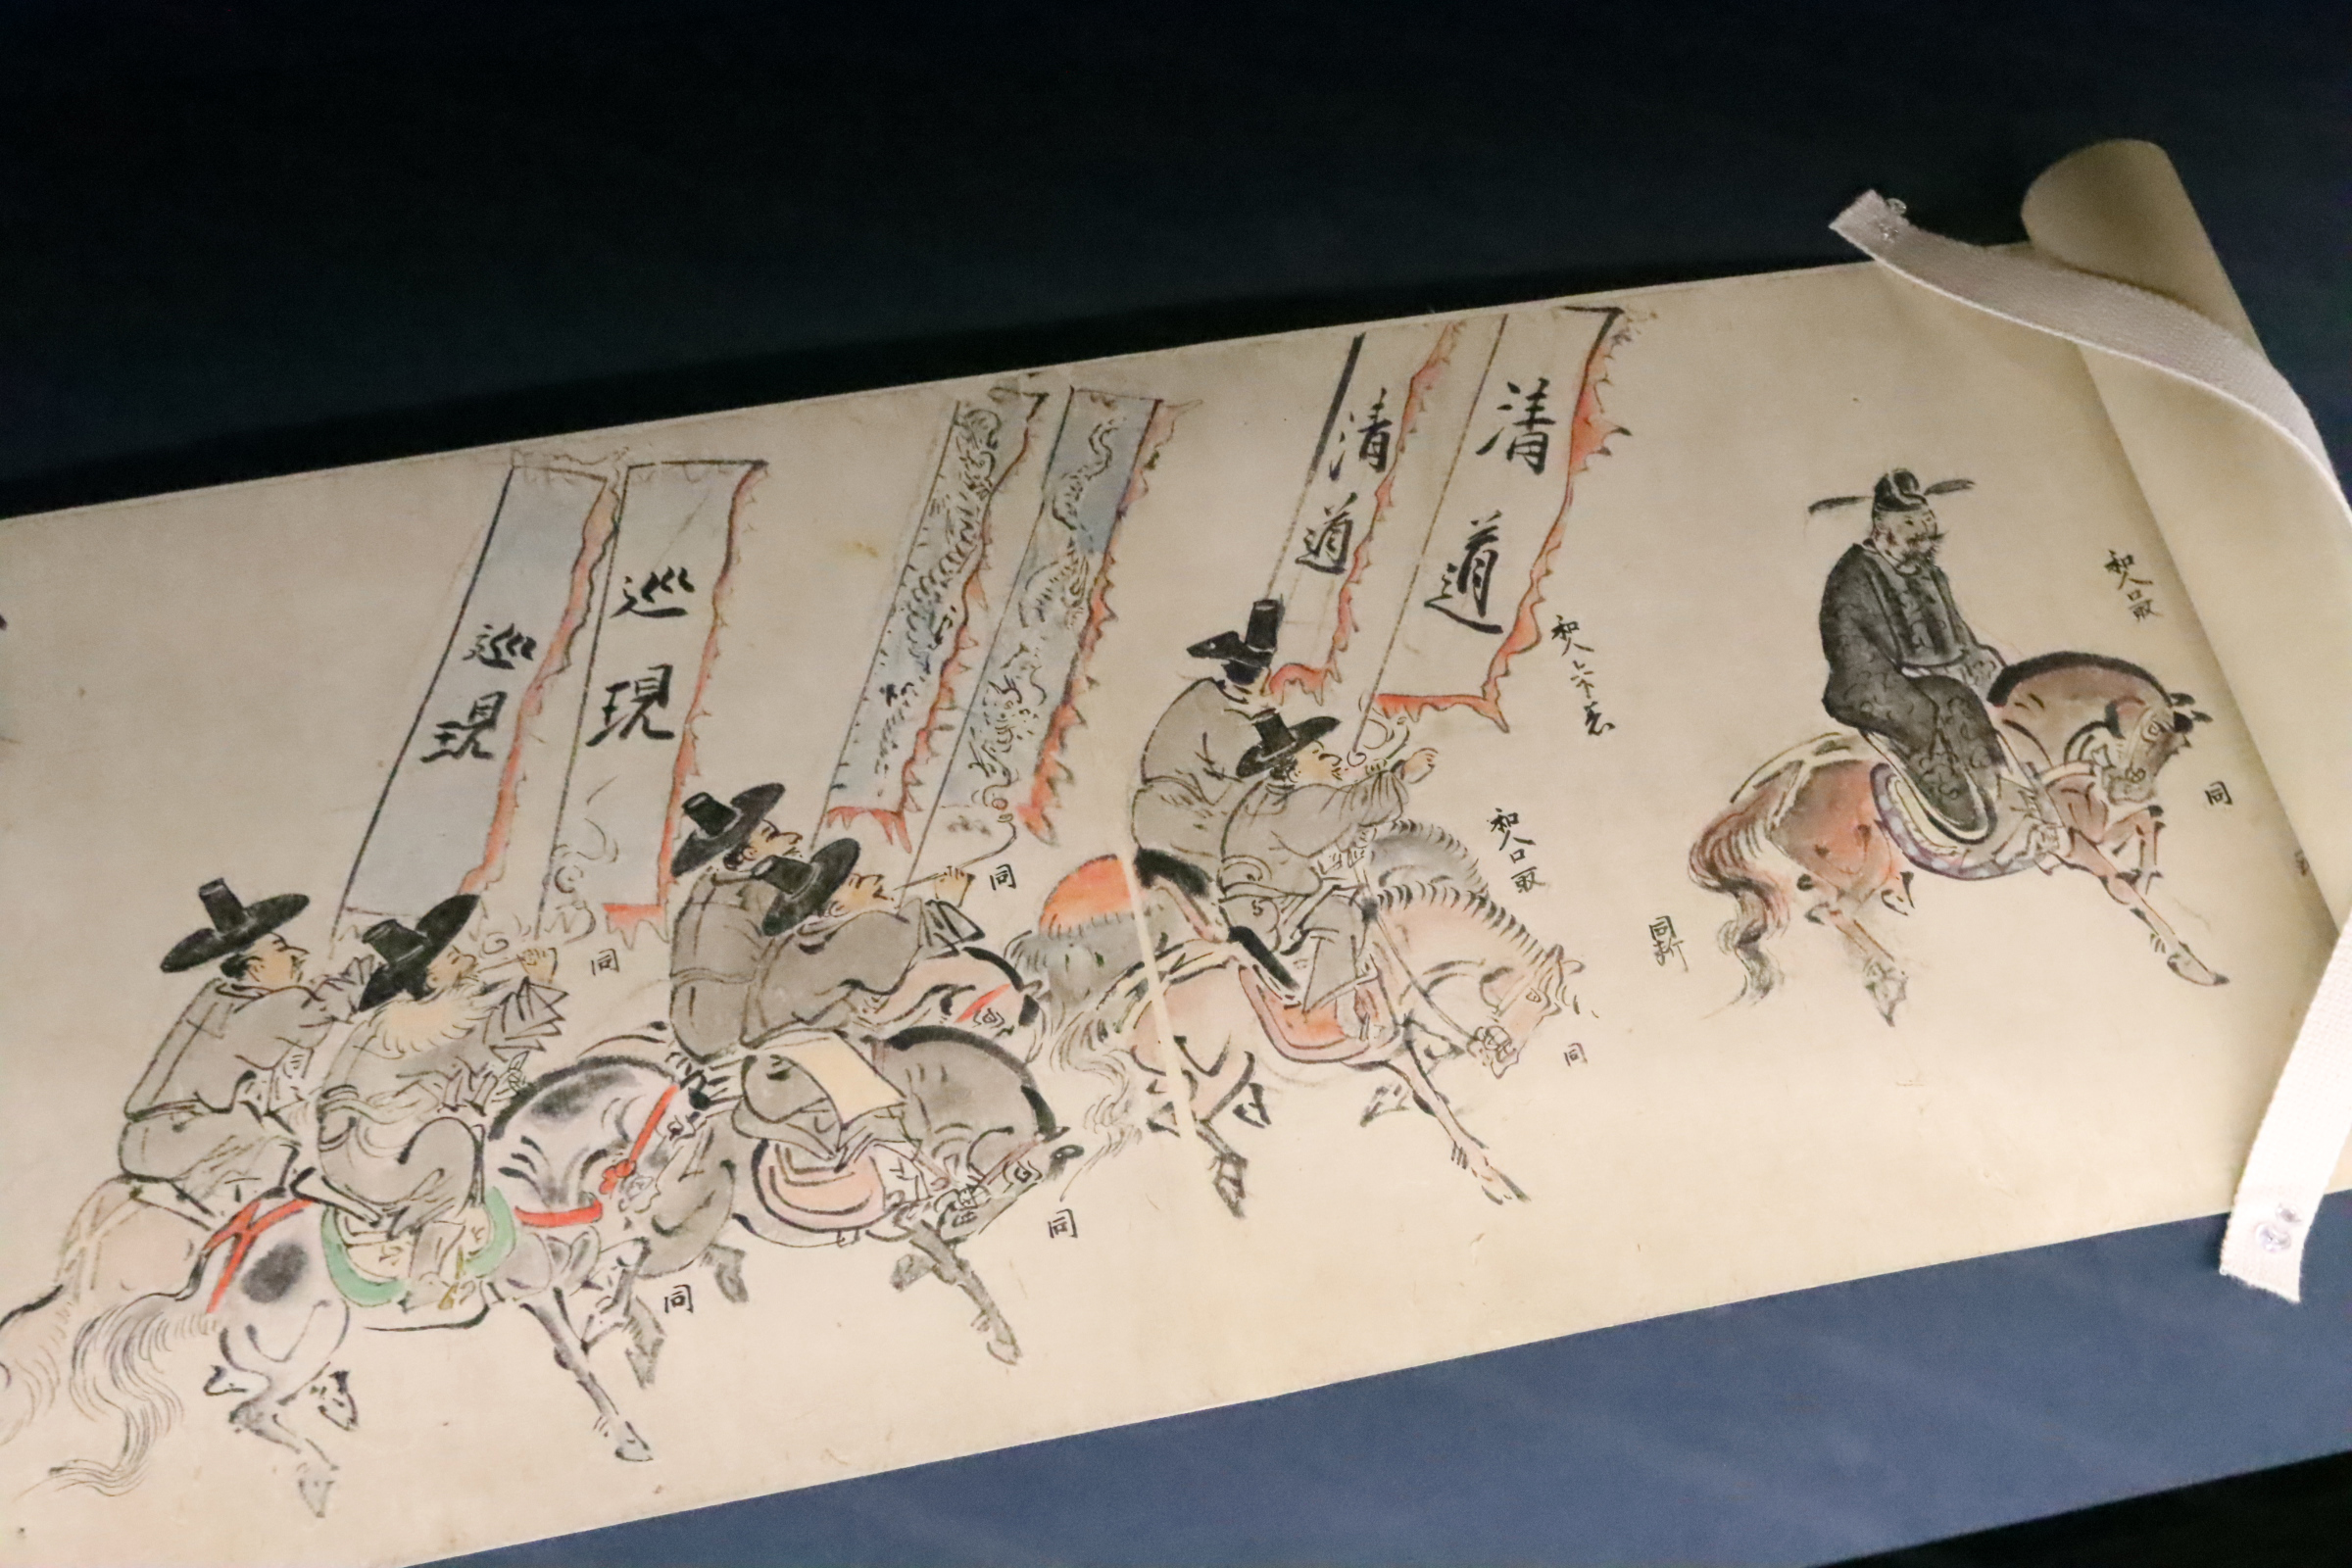 和人口取
同
清道
清道
和人六不着
和人口取
同
同𣂺
同
同
巡現
巡現
同
同